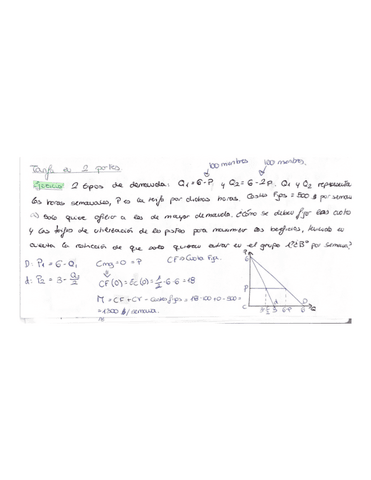 Tarifa en 2 partes
100 miembros 100 miembros
Ejercicio 2 tipos de demanda: Q1 = 6-P, y Q2 = 6-2P. Q1 y Q2 representa
las horas semanales, P es la tarifa por dichas horas. Costes fijos = 500 $ por semana
a) Solo quiere ofrecer a los de mayor demanda. ¿Cómo se deben fijar las cuotas
y las tarifas de utilización de las pistas para maximizar los beneficios, teniendo en
cuenta la restricción de que solo quieren entrar en el grupo 1? ¿B° por semana?
D: P1 = 6 - Q1 Cmg = 0 = P CF = Cuota fija.
d: P2 = 3 - Q2/2 CF(0) = Ec(0) = 1/2 · 6 · 6 = 18
Π = CF + CV - costes fijos = 18·100 + 0 - 500 =
= 1300 $ / semana.
P
6
3
P
C
3
6-P
D
Q